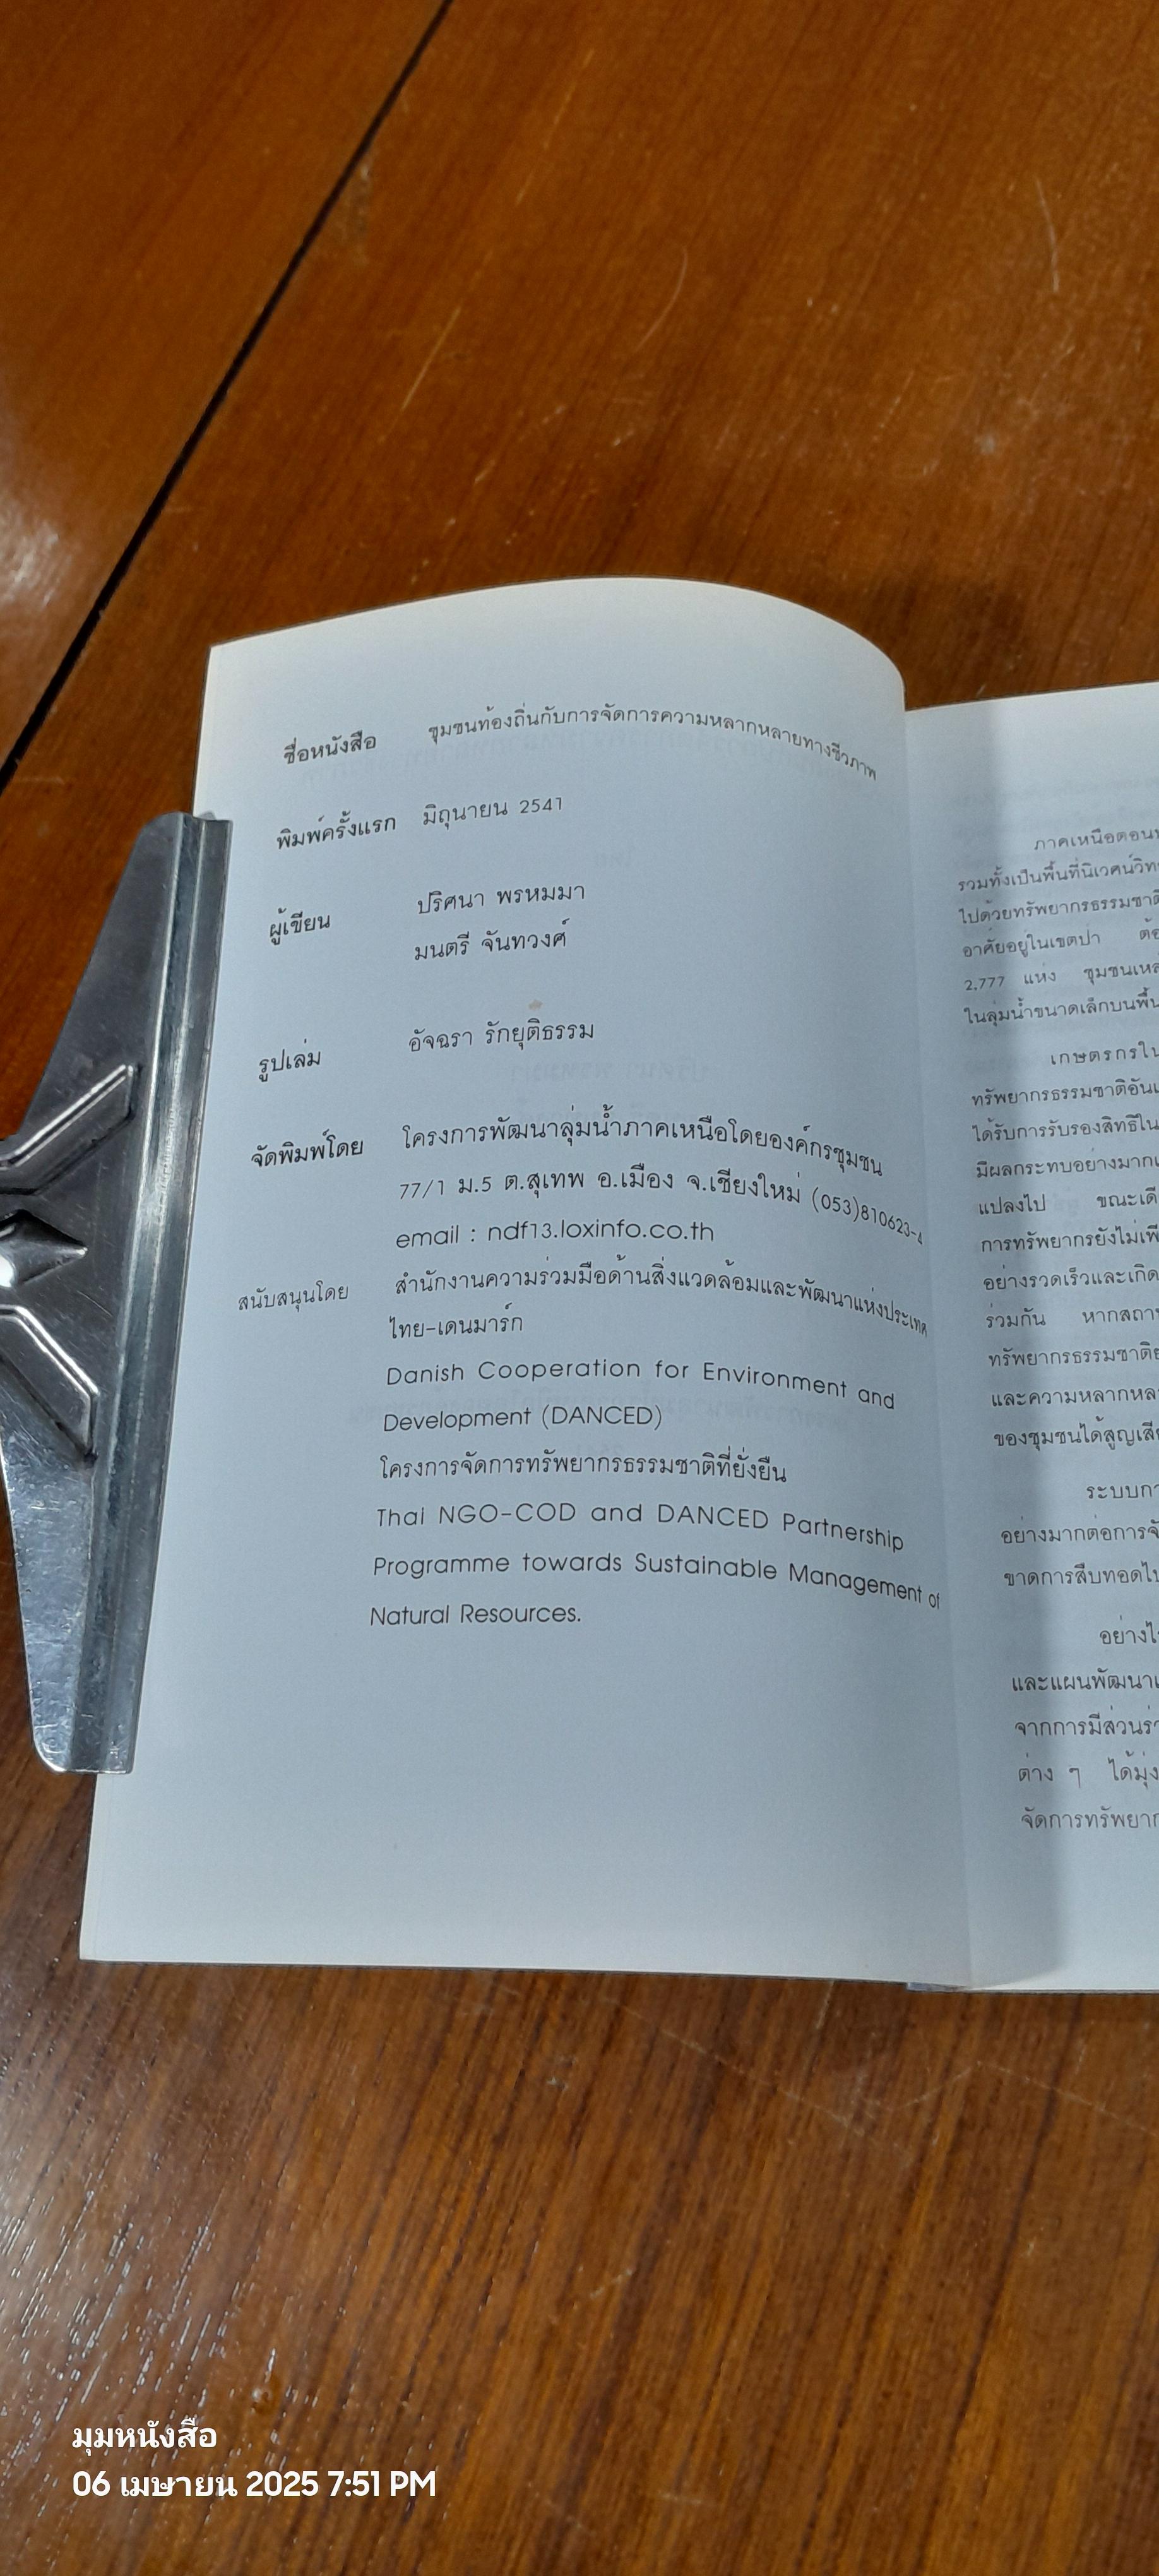 ชื่อหนังสือ ชุมชนท้องถิ่นกับการจัดการความหลากหลายทางชีวภาพ
พิมพ์ครั้งแรก มิถุนายน 2541
ผู้เขียน ปริศนา พรหมมา
มนตรี จันทวงศ์
รูปเล่ม อัจฉรา รักยุติธรรม
จัดพิมพ์โดย โครงการพัฒนาลุ่มน้ำภาคเหนือโดยองค์กรชุมชน
77/1 ม.5 ต.สุเทพ อ.เมือง จ.เชียงใหม่ (053)810623-4
email : ndf13.loxinfo.co.th
สนับสนุนโดย สำนักงานความร่วมมือด้านสิ่งแวดล้อมและพัฒนาแห่งประเทศ
ไทย-เดนมาร์ก
Danish Cooperation for Environment and
Development (DANCED)
โครงการจัดการทรัพยากรธรรมชาติที่ยั่งยืน
Thai NGO-COD and DANCED Partnership
Programme towards Sustainable Management of
Natural Resources.
ภาคเหนือตอน
รวมทั้งเป็นพื้นที่นิเวศน์วิท
ไปด้วยทรัพยากรธรรมชาติ
อาศัยอยู่ในเขตป่า ต้อ
2,777 แห่ง ชุมชนเหล่
ในลุ่มน้ำขนาดเล็กบนพื้น
เกษตรกรใน
ทรัพยากรธรรมชาติอัน
ได้รับการรับรองสิทธิใน
มีผลกระทบอย่างมาก
แปลงไป ขณะเดี
การทรัพยากรยังไม่เพี
อย่างรวดเร็วและเกิด
ร่วมกัน หากสถาน
ทรัพยากรธรรมชาติ
และความหลากหล
ของชุมชนได้สูญเสีย
ระบบกา
อย่างมากต่อการจั
ขาดการสืบทอดไป
อย่างไ
และแผนพัฒนา
จากการมีส่วนร่
ต่าง ๆ ได้มุ่ง
จัดการทรัพยาก
มุมหนังสือ
06 เมษายน 2025 7:51 PM